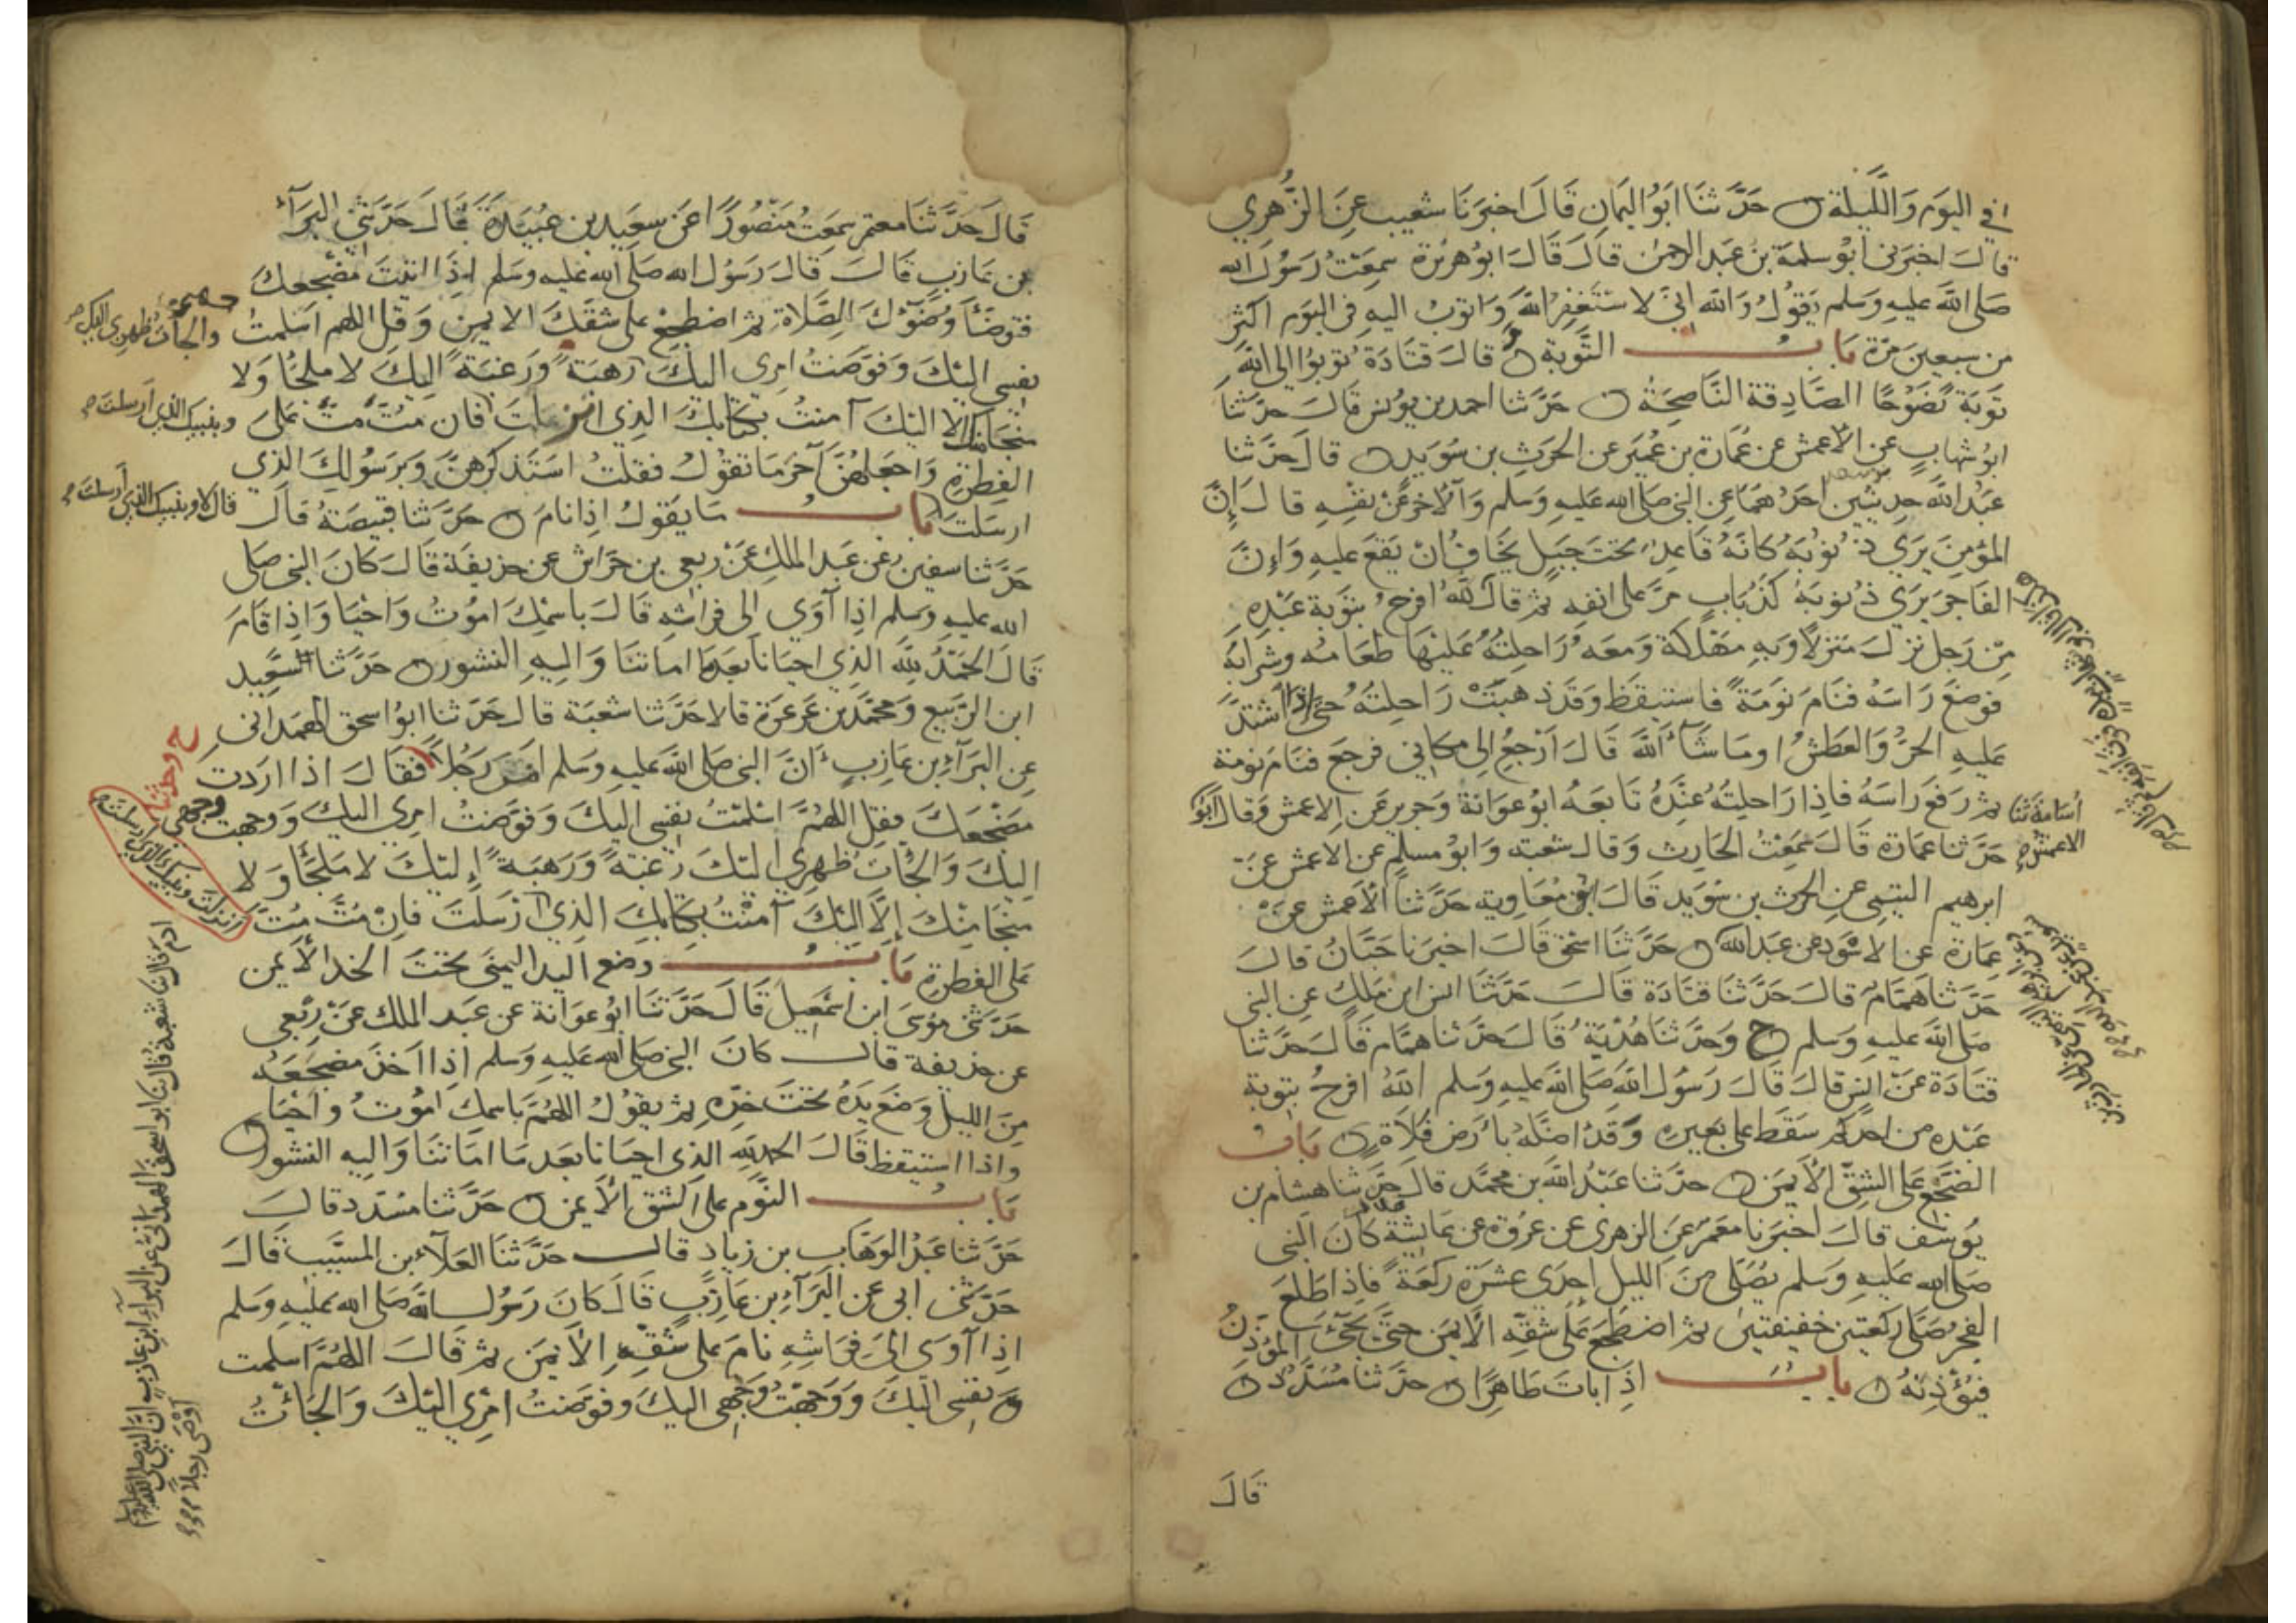 في اليَومِ وَاللَّيلَةِ ن حَدَّثنَا أبُو اليَمانِ قَالَ اخبَرَنَا شعَيب عَنِ الزُّهرِي
قالَ اخبَرَني ابو سَلمَة بن عَبد الرحمن قالَ قَالَ ابُو هريرَة سمِعَتُ رَسُول الله
صَلى اللهُ عليهِ وَسَلم يَقولُ وَالله اِني لاستَغفِر اللهَ وَاتوبُ اليهِ في اليَوم اكثر
من سبعِينَ مَرّة بَابُ التَّوبة ن قالَ قتَادَة تُوبُوا إلى اللهِ
تَوبَةً نَصُوحًا الصَّادِقة النَّاصِحَةُ ن حَدَّثنا احمد بن يُونس قالَ حدَّثنا
ابُو شهَابٍ عن الاعمش عن عُمَارَة بن عُمَير عن الحرَث بن سُوَيد ن قالَ حَدَّثنا
عَبدُ اللهِ حدِيثين احَدُهمَا عِن النبي صَلى الله عَليهِ وَسَلم وَالآخر عَنْ نفسِهِ قالَ إنَّ
المؤمِنَ يَرَي ذنُوبَهُ كانَهُ قاعِدٌ تحتَ جَبَلٍ يَخَافُ ان يَقعَ عليهِ وَإنَّ
الفَاجِرَ يَرَي ذنُوبَهُ كَذبَابٍ مَرَّ على انفهِ ثمَّ قالَ للهُ افرَحُ بتَوبَة عَبْدِهِ
مِنْ رَجلٍ نزَلَ مَنزلاً وَبهِ مَهْلَكة وَمعَه رَاحِلتُهُ عَليْهَا طعَامُه وشرَابُهُ
فوضعَ رَاسَهُ فنَامَ نَومَةً فاستيقظ وَقَد ذهبَتْ رَاحِلتُهُ حَتَّى إذا اشتَدَّ
عَليهِ الحرُّ وَالعَطشُ او مَا شَآءَ اللهُ قَالَ اَرْجِعُ إلى مَكانِي فرجَعَ فنَامَ نومَة
ثم رَفعَ رَاسَهُ فإذا رَاحِلتُهُ عِنْدَهُ تابَعَهُ ابُو عوَانة وَجَرير عَن الاعمش وَقال ابُو
أسَامة ثنا
الاعمش
حَدَّثنا عمَارَة قالَ سَمِعْتُ الحَارث وَقالَ شعبَة وَابُو مسلِمٍ عن الاعمش عَن
ابرهيم التيمي عن الحرث بن سُوَيد قَالَ ابُو مُعَاوِية حَدَّثنا الأعمش عن
عمَارَة عن الاسْوَد عن عَبد الله ن حَدَّثنا اسحَق قَالَ اخبرَنا حَبَّانُ قالَ
حَدَّثنا هَمَّامٌ قالَ حَدَّثنا قتَادَة قالَ حَدَّثنا انس ابن مَلِكٍ عن النبي
صَلى الله عَليهِ وَسَلم ح وَحَدَّثنَا هُدْبَةُ قالَ حَدَّثنا همَّام قالَ حَدَّثنا
قتَادَة عَنْ انسٍ قالَ قَالَ رَسُول اللهِ صَلى اللهُ عَليهِ وَسَلم اللهُ افرَحُ بتوبة
عَبْدِهِ من احَدِكم سَقَط على بَعِيرهِ وَقدْ اضَلَّهُ بأرْض فَلاةٍ ن بَابُ
الضَّجْعِ عَلى الشِقِّ الأيمَن ن حدَّثنا عَبْدُ اللهِ بن محمَّد قالَ حَدَّثنا هشام بن
يُوسُف قالَ اخبَرَنا مَعْمَرٌ عَن الزهري عن عرْوَة عن عَايشَة كانَ النبي
صَلى الله عَليهِ وَسَلم يُصَلّي مِنَ الليل إحدَى عشرَة ركعَةً فَإذا طَلعَ
الفجرُ صَلى ركعَتين خفيفتين ثم اضطَجَعَ عَلى شقهِ الأيمَن حتَّى يَجيءَ المؤذنُ
فيُؤذنَهُ ن بَابُ اذَا بَاتَ طَاهِرًا ن حَدَّثنا مُسَدَّدٌ ن
قَالَ
قَالَ حَدَّثنَا معتمر سَمِعتُ مَنصُورًا عَن سعِيد بن عُبَيدَة قَالَ حَدَّثني البَرَآءُ
بن عَازِبٍ قَالَ قَالَ رَسُول الله صَلى الله عَليهِ وَسَلم إذَا اتَيتَ مَضجعكَ
فتَوضَّأ وُضُوْءَكَ لِلصَّلاةِ ثم اضطجِعْ على شقكَ الايمن وَقل اللهم اَسلمتُ
وَالجأتُ ظهرِي اليك صح
نفسِي اليْكَ وَفوّضتُ امري اليكَ رَهبَةً وَرَغبَةً اليكَ لا ملجَأ وَلا
مَنجَا منكَ الا اليْكَ آمنتُ بكِتابكَ الذِي انزلتَ فان متَّ متَّ عَلى
وبنبيك الذي اَرسلت صح
الفِطرَةِ وَاجعَلهُنَّ آخرَ مَا تقولُ فقلتُ اسْتَذكرهنَّ وَبِرَسُولِكَ الذِي
ارسَلتَ
قالَ لا وبنبيك الذي أرسلتَ صح
بَابُ مَا يَقولُ اذا نامَ ن حَدَّثنا قبيصَةُ قالَ
حَدَّثنا سفين عَن عَبد الملكِ عَنْ ربعي بن حِرَاش عن حذيفَة قَالَ كانَ النبي صَلى
الله عَليهِ وَسَلم اذا آوَى إلى فرَاشِهِ قالَ باسْمِكَ امُوتُ وَاحْيَا وَاذا قامَ
قالَ الحَمْدُ للهِ الذِي احيَانا بَعدَ مَا امَاتنا وَاليهِ النشور ن حَدَّثنا سَعِيد
ابن الرَّبيع وَمحمَّد بن عَرعَرَة قالا حَدَّثنا شعبَة قال حَدَّثنا ابُو اسحق الهمداني
عَن البَرَآءِ بن عَازِبٍ أَنَّ النبي صَلى اللهُ عَليهِ وَسَلم امَر رَجُلاً فقالَ اذا ارَدت
ح وحدثنا
مَضْجَعَكَ فقل اللهُمَّ اسْلمْتُ نفسِي اليكَ وَفوَّضتُ امرِي اليكَ وَوجهت وَجهي
اليكَ وَالجأتُ ظهرِي اليكَ رَغبَةً وَرَهبَةً إليكَ لا مَلجَأَ وَلا
مَنجَا مِنْكَ إلَّا اليْكَ آمَنْتُ بكِتابكَ الذِي أرْسَلتَ فانْ مُتَّ مُتَّ
انزلت وبنبيك الذي ارسلت صح
عَلى الفطرَةِ بَابُ وضع اليد اليمنَى تحتَ الخد الأيمن
حَدَّثني مُوسَى ابن اسْمَعِيل قَالَ حَدَّثنَا ابُو عوَانة عن عَبد الملك عَنْ رِبْعي
عن حذيفة قالَ كانَ النبي صَلى الله عَليهِ وَسَلم إذا اخذ مَضجَعَهُ
مِنَ الليل وَضعَ يَدَهُ تحتَ خدِّهِ ثم يقولُ اللهُمَّ باسمِكَ امُوتُ وَاحْيَا
واذا استيقظ قالَ الحمد للهِ الذي احيَانا بَعد مَا امَاتنَا وَاليهِ النشور ن
بَابُ النَّوم على الشق الأيمن ن حَدَّثنا مسَدّد قالَ
حَدَّثنا عَبْدُ الوهَّاب بن زياد قالَ حَدَّثنَا العَلآءُ بن المسَيَّب قَالَ
حَدَّثني ابي عَن البَرَآءِ بن عَازِبٍ قَالَ كانَ رَسُول الله صَلى الله عَليهِ وَسَلم
اذا آوَى إلىَ فِرَاشِهِ نامَ عَلى شقِّهِ الأيمَن ثم قَالَ اللهُمَّ اسلمت
نفسِي اليْكَ وَوَجهْتُ وَجْهي اليكَ وفوّضتُ امْرِي اليْكَ وَالجأتُ
ادم قال ثنا شعبة قال ثنا ابو اسحق الهمدانيُّ عن البرآءِ ابن عازبٍ انَّ النبي صلى الله عليه وسلم
اوصَى رجلاً